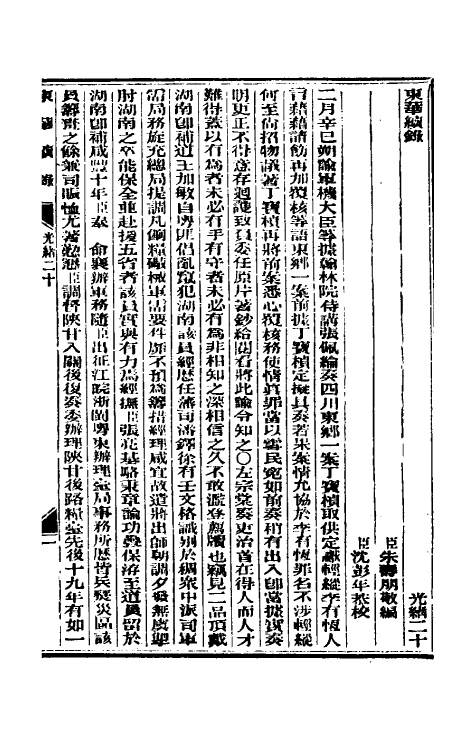 東華續錄
光緒二十
臣朱壽朋敬編
臣沈彭年恭校
二月辛巳朔諭軍機大臣等據翰林院侍講張佩綸奏四川東鄉一案丁寶楨取供定讞輕縱李有恆人
言藉藉請飭再加覆核等語東鄉一案前據丁寶楨定擬具奏若果案情允協於李有恆罪名不涉輕縱
何至尚招物議著丁寶楨再將前案悉心覆核務使情眞罪當以雪民冤如前奏稍有出入卽當據實奏
明更正不得意存迴護致負委任原片著鈔給閱看將此諭令知之〇左宗棠奏吏治首在得人而人才
難得蓋以有為者未必有手有守者未必有為非相知之深相信之久不敢濫登薦牘也竊見二品頂戴
湖南卽補道王加敏自粵匪倡亂竄犯湖南該員經歷任藩司潘鐸徐有壬文格識別於稠衆中派司軍
需局務旋充總局提調凡餉糧礮械軍需要件靡不預為籌措經理咸宜故遣將出師朝調夕發無虞掣
肘湖南之卒能保全並赴援五省者該員實與有力焉經撫臣張亮基駱秉章論功疊保洊至道員留於
湖南卽補咸豐十年臣奉 命襄辦軍務隨臣出征江皖浙閩粵東辦理臺局事務所歷皆兵燹災區該
員籌別之餘兼司賑恤尤著勤懇臣調督陝甘入關後復奏委辦理陝甘後路糧臺先後十九年有如一
東華續錄
光緒二十
一